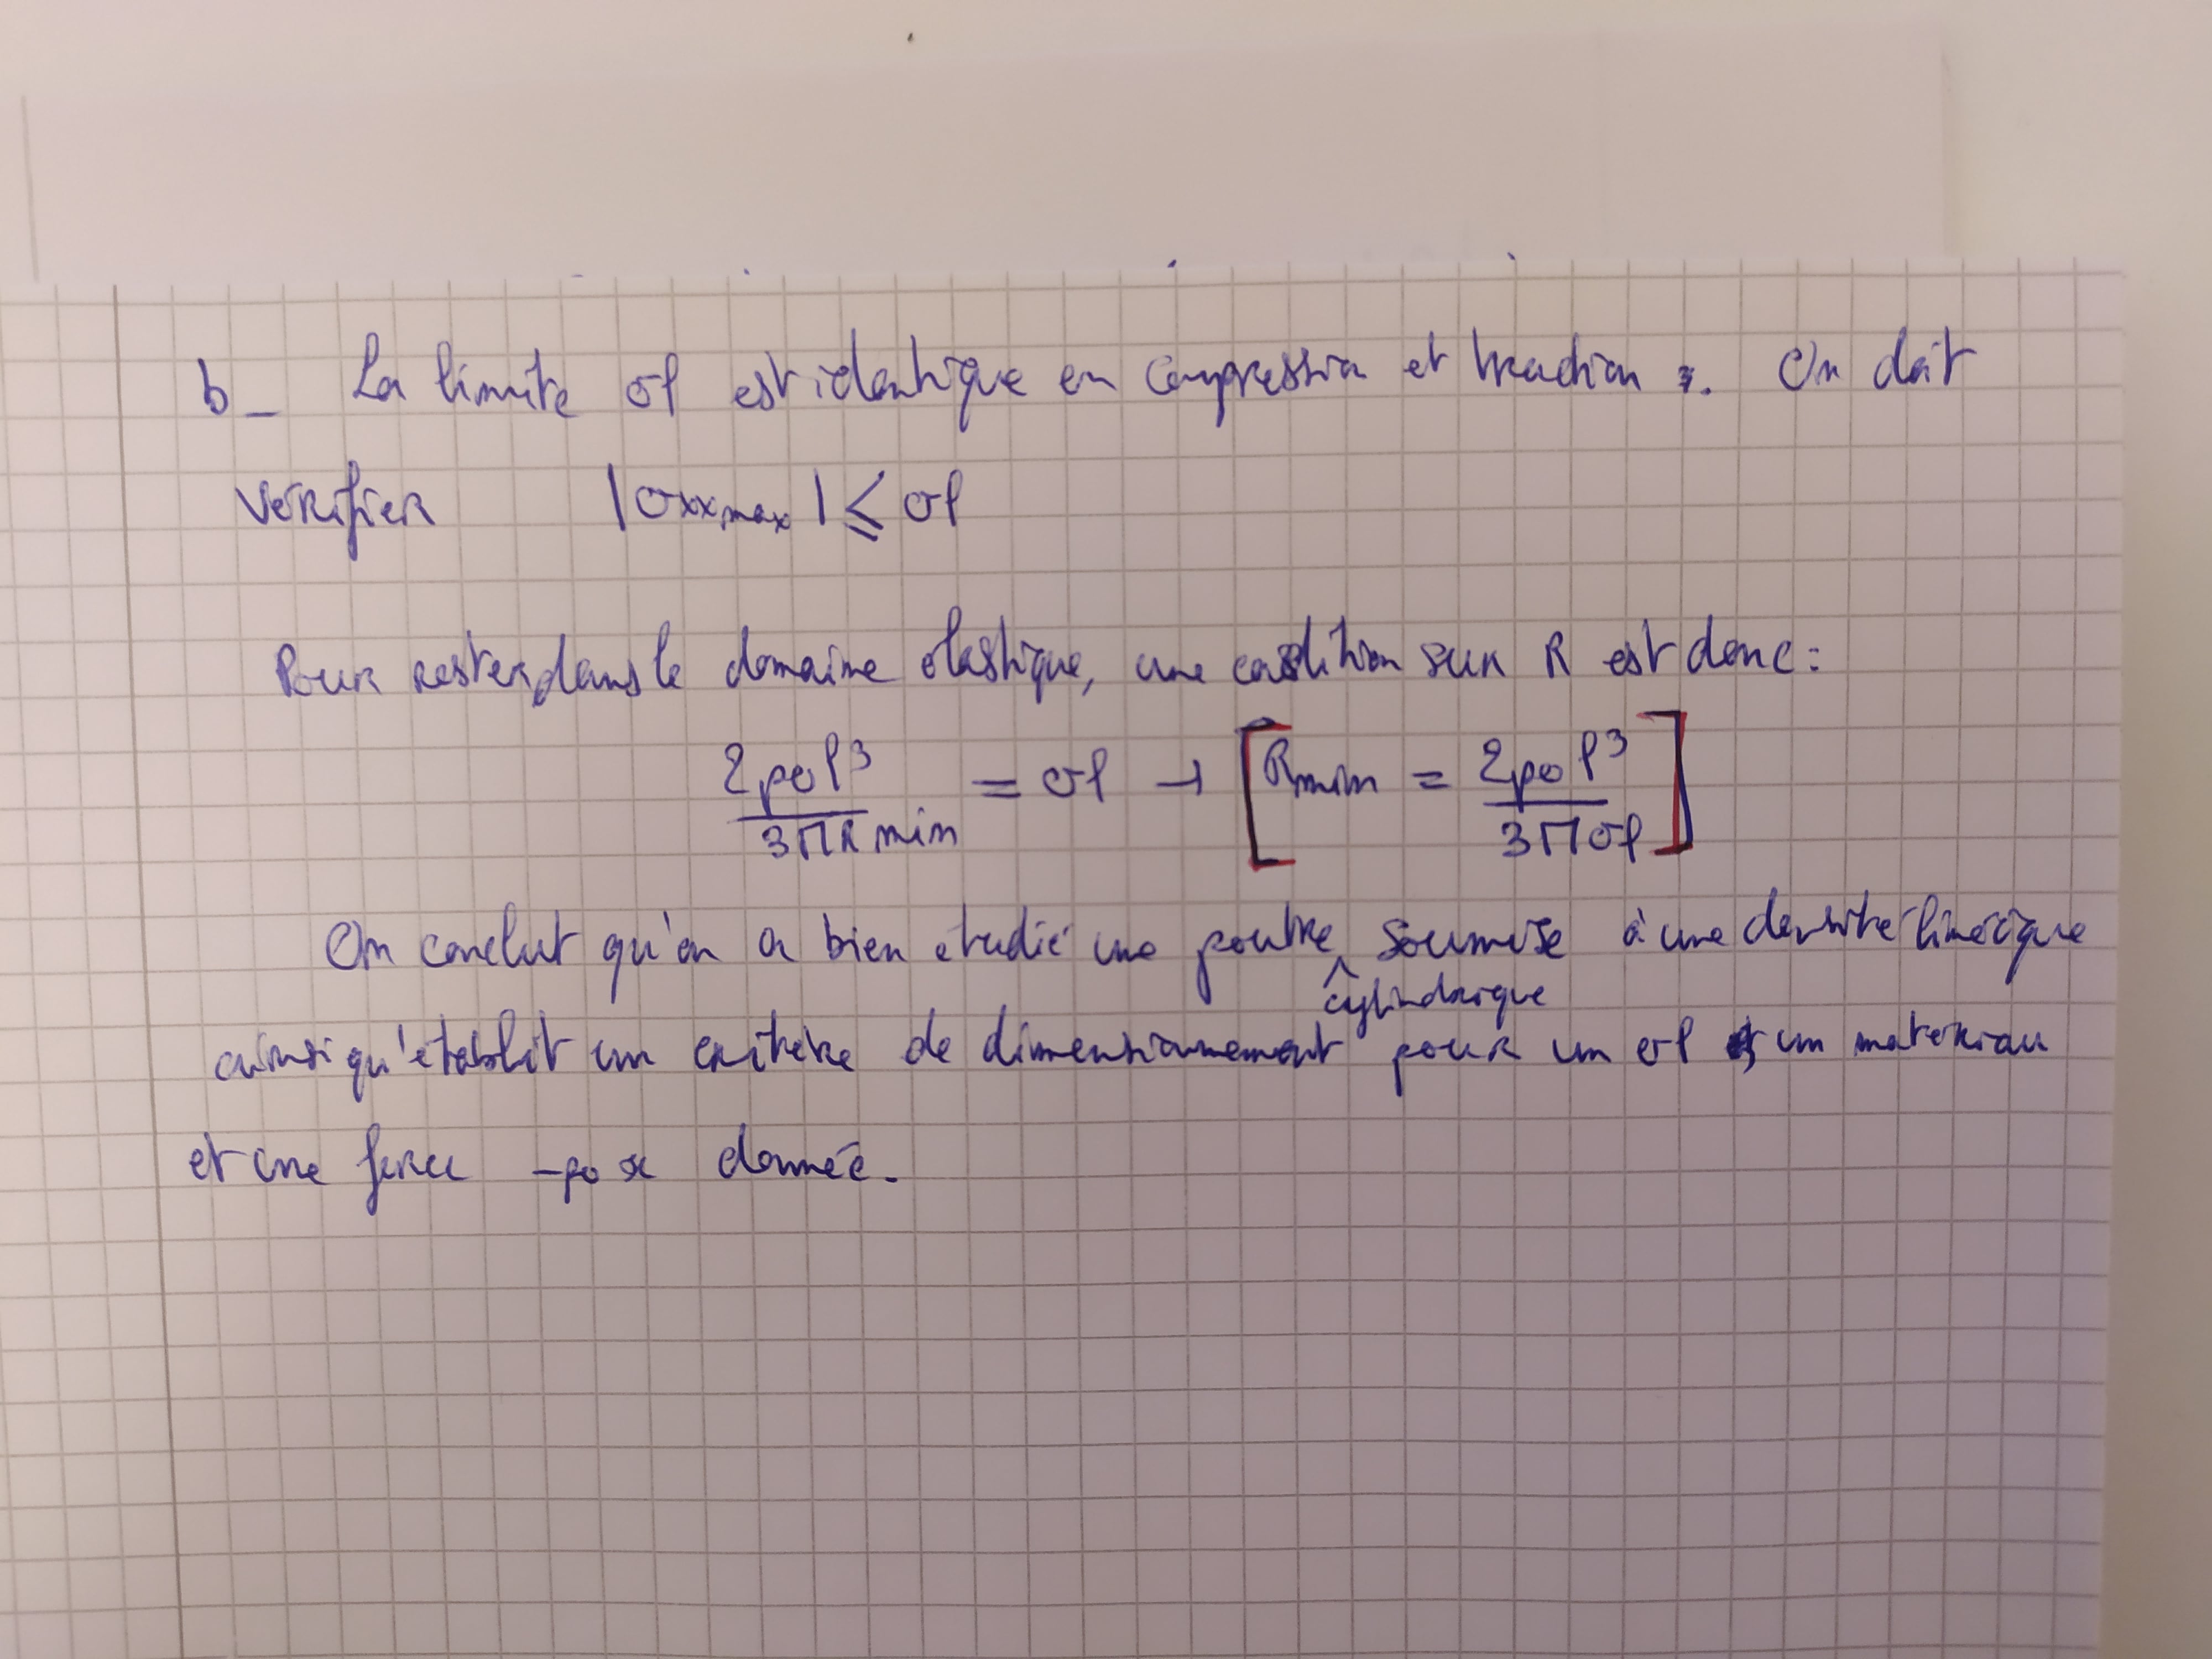 b_ La limite σl est identique en compression et traction. On doit
vérifier |σxx,max| ≤ σl
Pour rester dans le domaine élastique, une condition sur R est donc:
2p0l³ / 3πRmin = σl → [Rmin = 2p0l³ / 3πσl]
On conclut qu'on a bien étudié une poutre cylindrique soumise à une densité linéique
ainsi qu'établit un critère de dimensionnement pour un σl un materiau
et une force -p0x donnée.